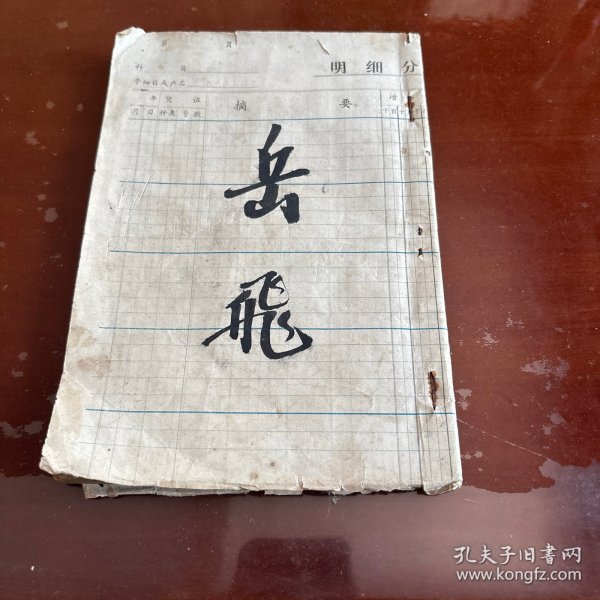 第 頁
科 目
明 细 分
子细目或户名
年 凭 证 摘 要 增
月 日 种类 号数 千百十
岳
飛
孔夫子旧書网
www.kongfz.com